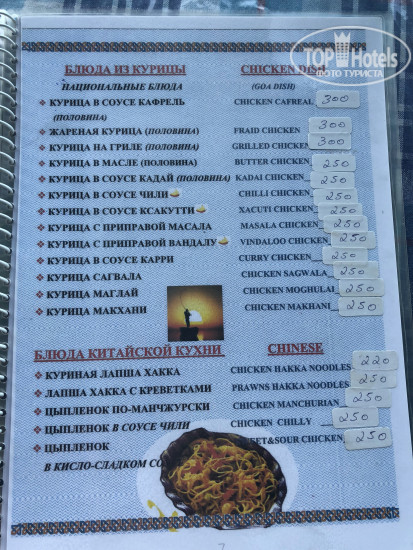 TOP Hotels
ФОТО ТУРИСТА
БЛЮДА ИЗ КУРИЦЫ CHICKEN DISH
НАЦИОНАЛЬНЫЕ БЛЮДА (GOA DISH)
КУРИЦА В СОУСЕ КАФРЕЛЬ CHICKEN CAFREAL 300
(ПОЛОВИНА)
ЖАРЕНАЯ КУРИЦА (ПОЛОВИНА) FRAID CHICKEN 300
КУРИЦА НА ГРИЛЕ (ПОЛОВИНА) GRILLED CHICKEN 300
КУРИЦА В МАСЛЕ (ПОЛОВИНА) BUTTER CHICKEN 250
КУРИЦА В СОУСЕ КАДАЙ (ПОЛОВИНА) KADAI CHICKEN 250
КУРИЦА В СОУСЕ ЧИЛИ CHILLI CHICKEN 250
КУРИЦА В СОУСЕ КСАКУТТИ XACUTI CHICKEN 250
КУРИЦА С ПРИПРАВОЙ МАСАЛА MASALA CHICKEN 250
КУРИЦА С ПРИПРАВОЙ ВАНДАЛУ VINDALOO CHICKEN 250
КУРИЦА В СОУСЕ КАРРИ CURRY CHICKEN 250
КУРИЦА САГВАЛА CHICKEN SAGWALA 250
КУРИЦА МАГЛАЙ CHICKEN MOGHULAI 250
КУРИЦА МАКХАНИ CHICKEN MAKHANI 250
БЛЮДА КИТАЙСКОЙ КУХНИ CHINESE
КУРИНАЯ ЛАПША ХАККА CHICKEN HAKKA NOODLES 220
ЛАПША ХАККА С КРЕВЕТКАМИ PRAWNS HAKKA NOODLES 250
ЦЫПЛЕНОК ПО-МАНЧЖУРСКИ CHICKEN MANCHURIAN 250
ЦЫПЛЕНОК В СОУСЕ ЧИЛИ CHICKEN CHILLY 250
ЦЫПЛЕНОК ET&SOUR CHICKEN 250
В КИСЛО-СЛАДКОМ СО